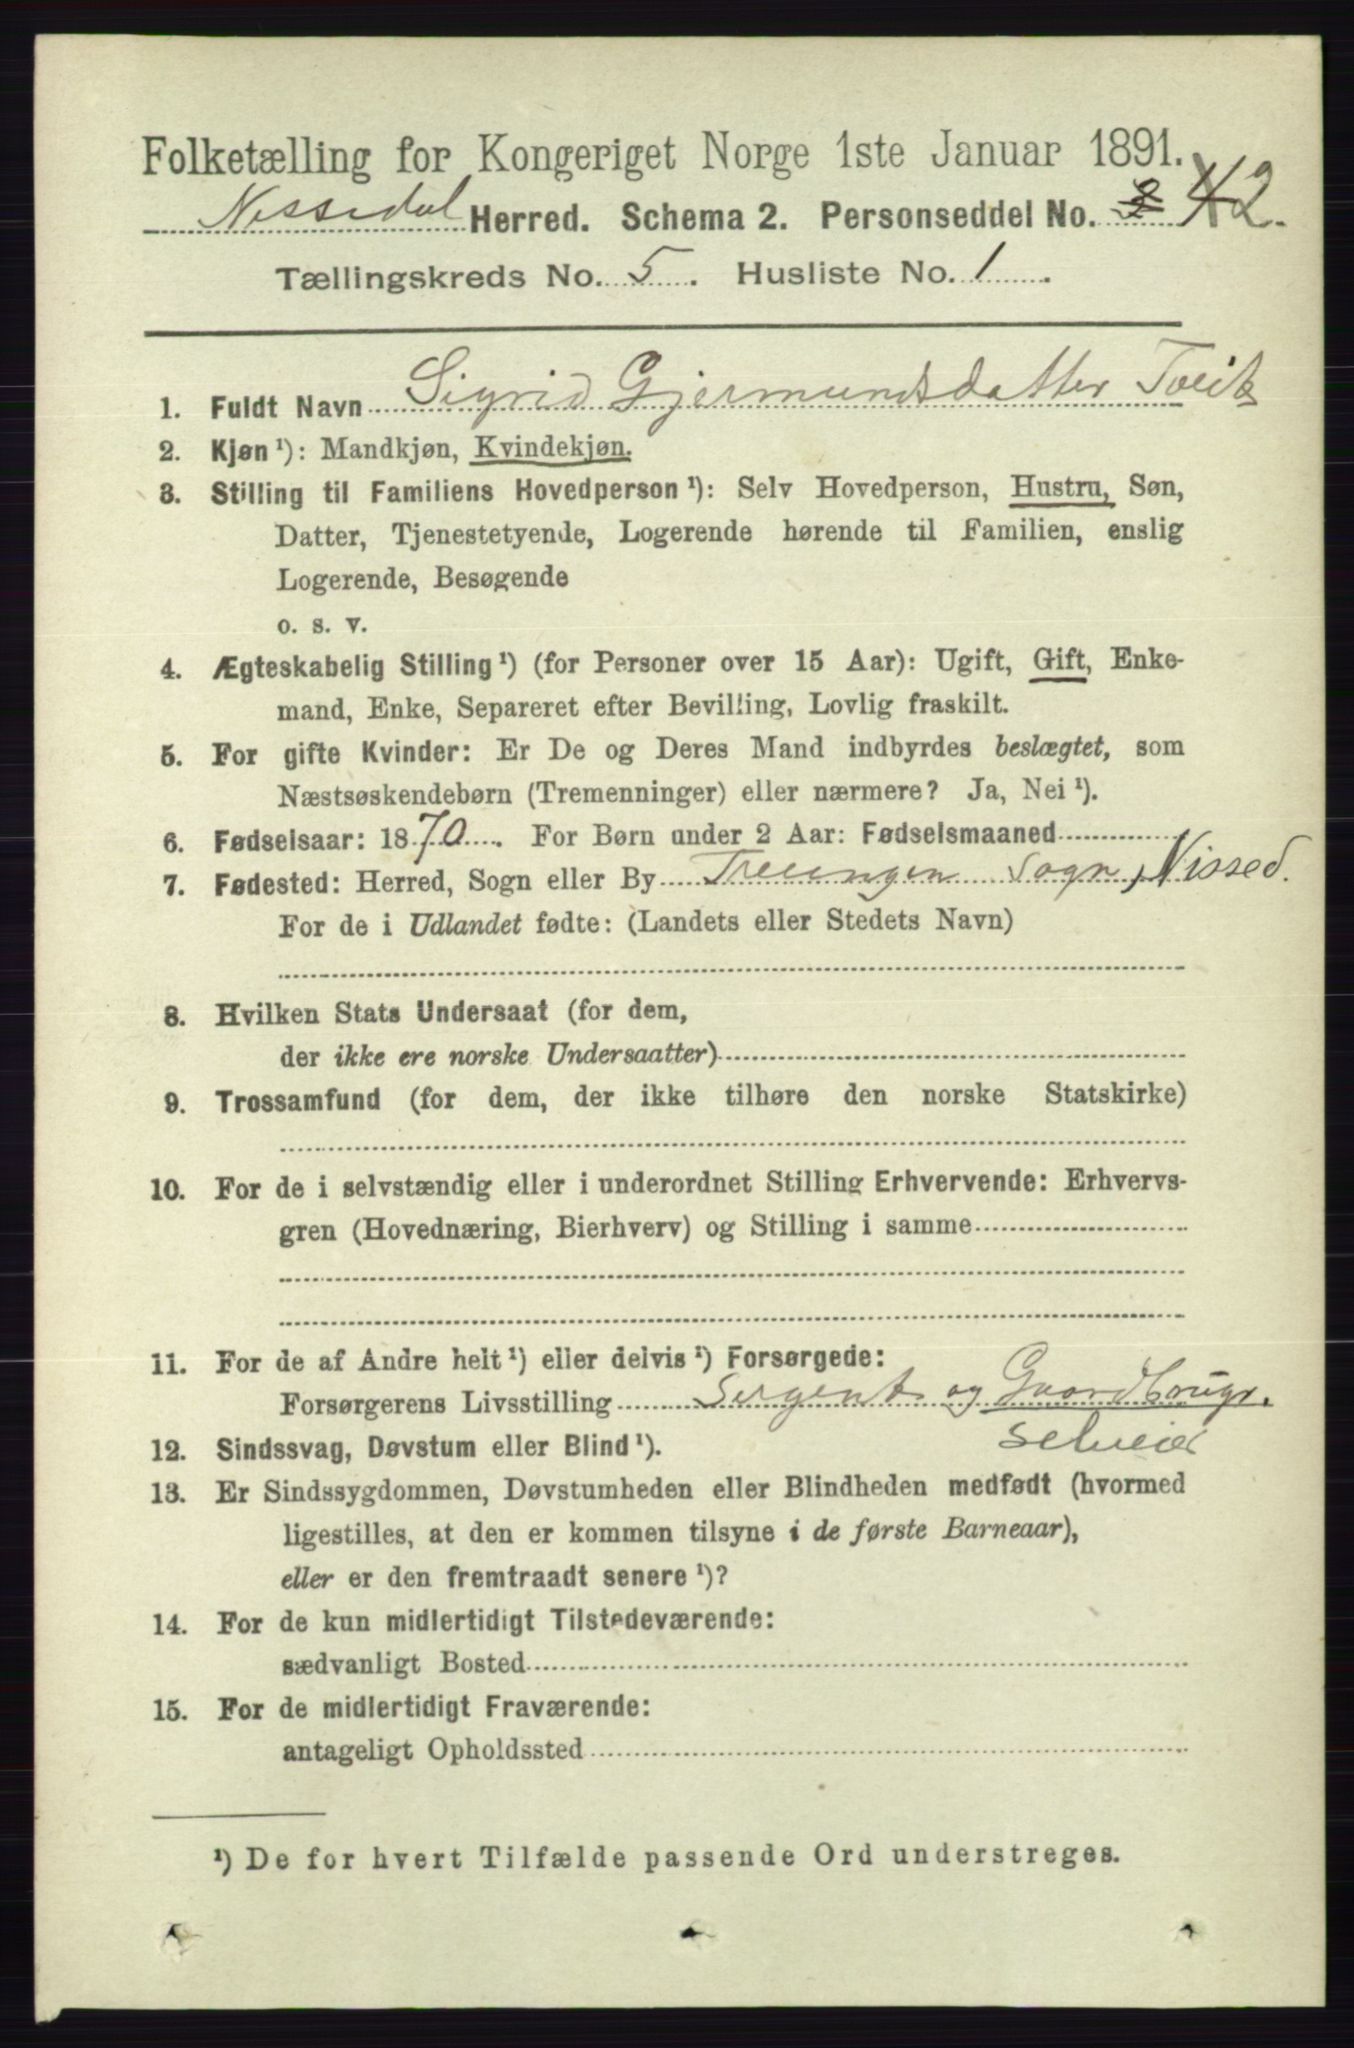 Folketælling for Kongeriget Norge 1ste Januar 1891.
Nissedal Herred. Schema 2. Personseddel No. 2
Tællingskreds No. 5. Husliste No. 1.
1. Fuldt Navn Sigrid Gjermundsdatter Tveit
2. Kjøn ¹): Mandkjøn, Kvindekjøn.
3. Stilling til Familiens Hovedperson ¹): Selv Hovedperson, Hustru, Søn,
Datter, Tjenestetyende, Logerende hørende til Familien, enslig
Logerende, Besøgende
o. s. v.
4. Ægteskabelig Stilling ¹) (for Personer over 15 Aar): Ugift, Gift, Enke-
mand, Enke, Separeret efter Bevilling, Lovlig fraskilt.
5. For gifte Kvinder: Er De og Deres Mand indbyrdes beslægtet, som
Næstsøskendebørn (Tremenninger) eller nærmere? Ja, Nei ¹).
6. Fødselsaar: 1870. For Børn under 2 Aar: Fødselsmaaned
7. Fødested: Herred, Sogn eller By Treungen Sogn, Nissed.
For de i Udlandet fødte: (Landets eller Stedets Navn)
8. Hvilken Stats Undersaat (for dem,
der ikke ere norske Undersaatter)
9. Trossamfund (for dem, der ikke tilhøre den norske Statskirke)
10. For de i selvstændig eller i underordnet Stilling Erhvervende: Erhvervs-
gren (Hovednæring, Bierhverv) og Stilling i samme
11. For de af Andre helt ¹) eller delvis ¹) Forsørgede:
Forsørgerens Livsstilling Sergent og Gaardbrugr.
selveier
12. Sindssvag, Døvstum eller Blind ¹).
13. Er Sindssygdommen, Døvstumheden eller Blindheden medfødt (hvormed
ligestilles, at den er kommen tilsyne i de første Barneaar),
eller er den fremtraadt senere ¹)?
14. For de kun midlertidigt Tilstedeværende:
sædvanligt Bosted
15. For de midlertidigt Fraværende:
antageligt Opholdssted
¹) De for hvert Tilfælde passende Ord understreges.